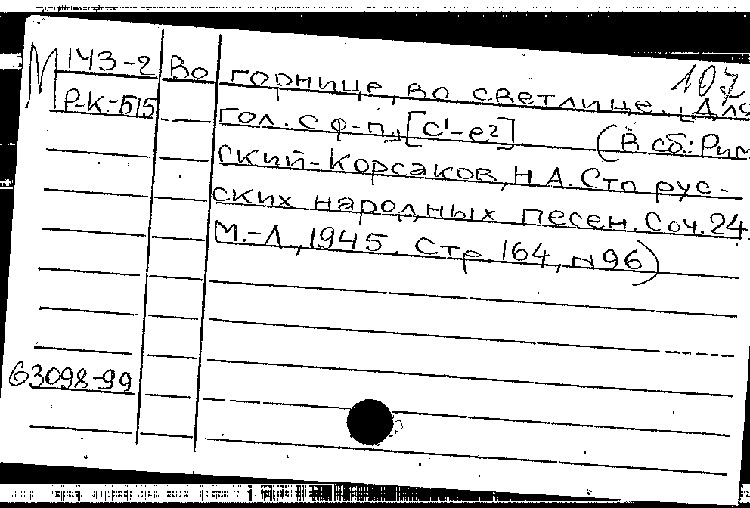 107
М 143-2 Во горнице, во светлице. [Для
Р-К.-515 гол. с ф-п., [c¹-e²] (В сб.: Рим
ский-Корсаков, Н.А. Сто рус-
ских народных песен. Соч. 24.
М.-Л., 1945. Стр. 164, N 96)
63098-99